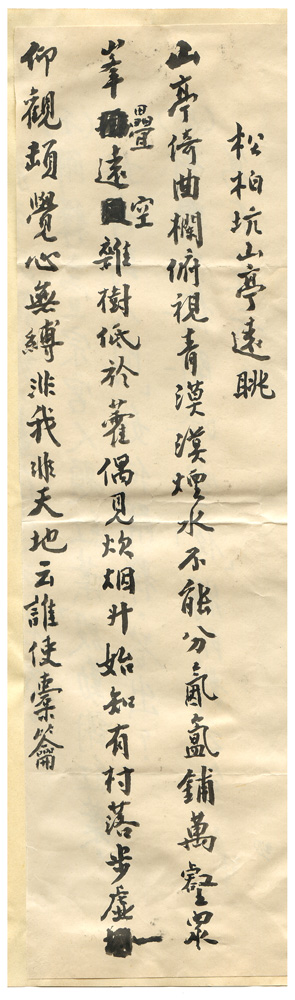 松柏坑山亭遠眺
山亭倚曲欄俯視青漠漠煙水不能分氤氳鋪萬壑眾
峯疊遠空雜樹低於藿偶見炊烟升始知有村落步虛一
仰觀頓覺心無縛非我非天地云誰使橐籥